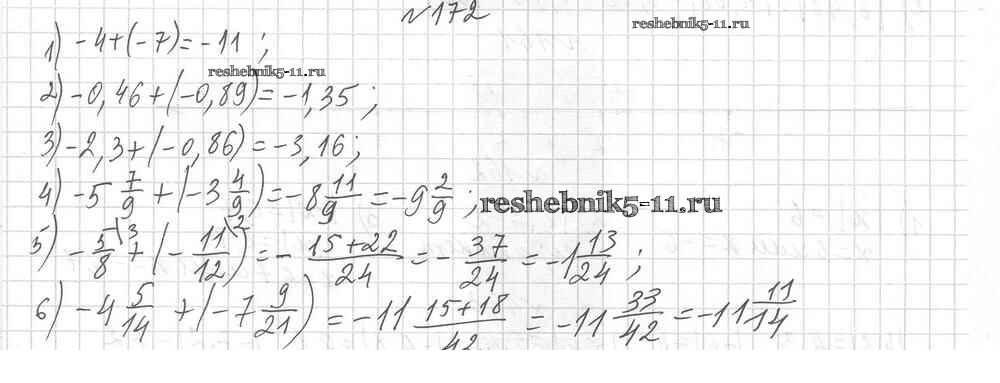 №172
reshebnik5-11.ru
1) -4+(-7)=-11 ;
reshebnik5-11.ru
2) -0,46+(-0,89)=-1,35 ;
3) -2,3+(-0,86)=-3,16 ;
4) -5 7/9 + (-3 4/9)=-8 11/9 = -9 2/9 ;
reshebnik5-11.ru
5) - 5/8 \3 + (- 11/12 \2) = - 15+22/24 = - 37/24 = -1 13/24 ;
6) -4 5/14 + (-7 9/21) = -11 15+18/42 = -11 33/42 = -11 11/14